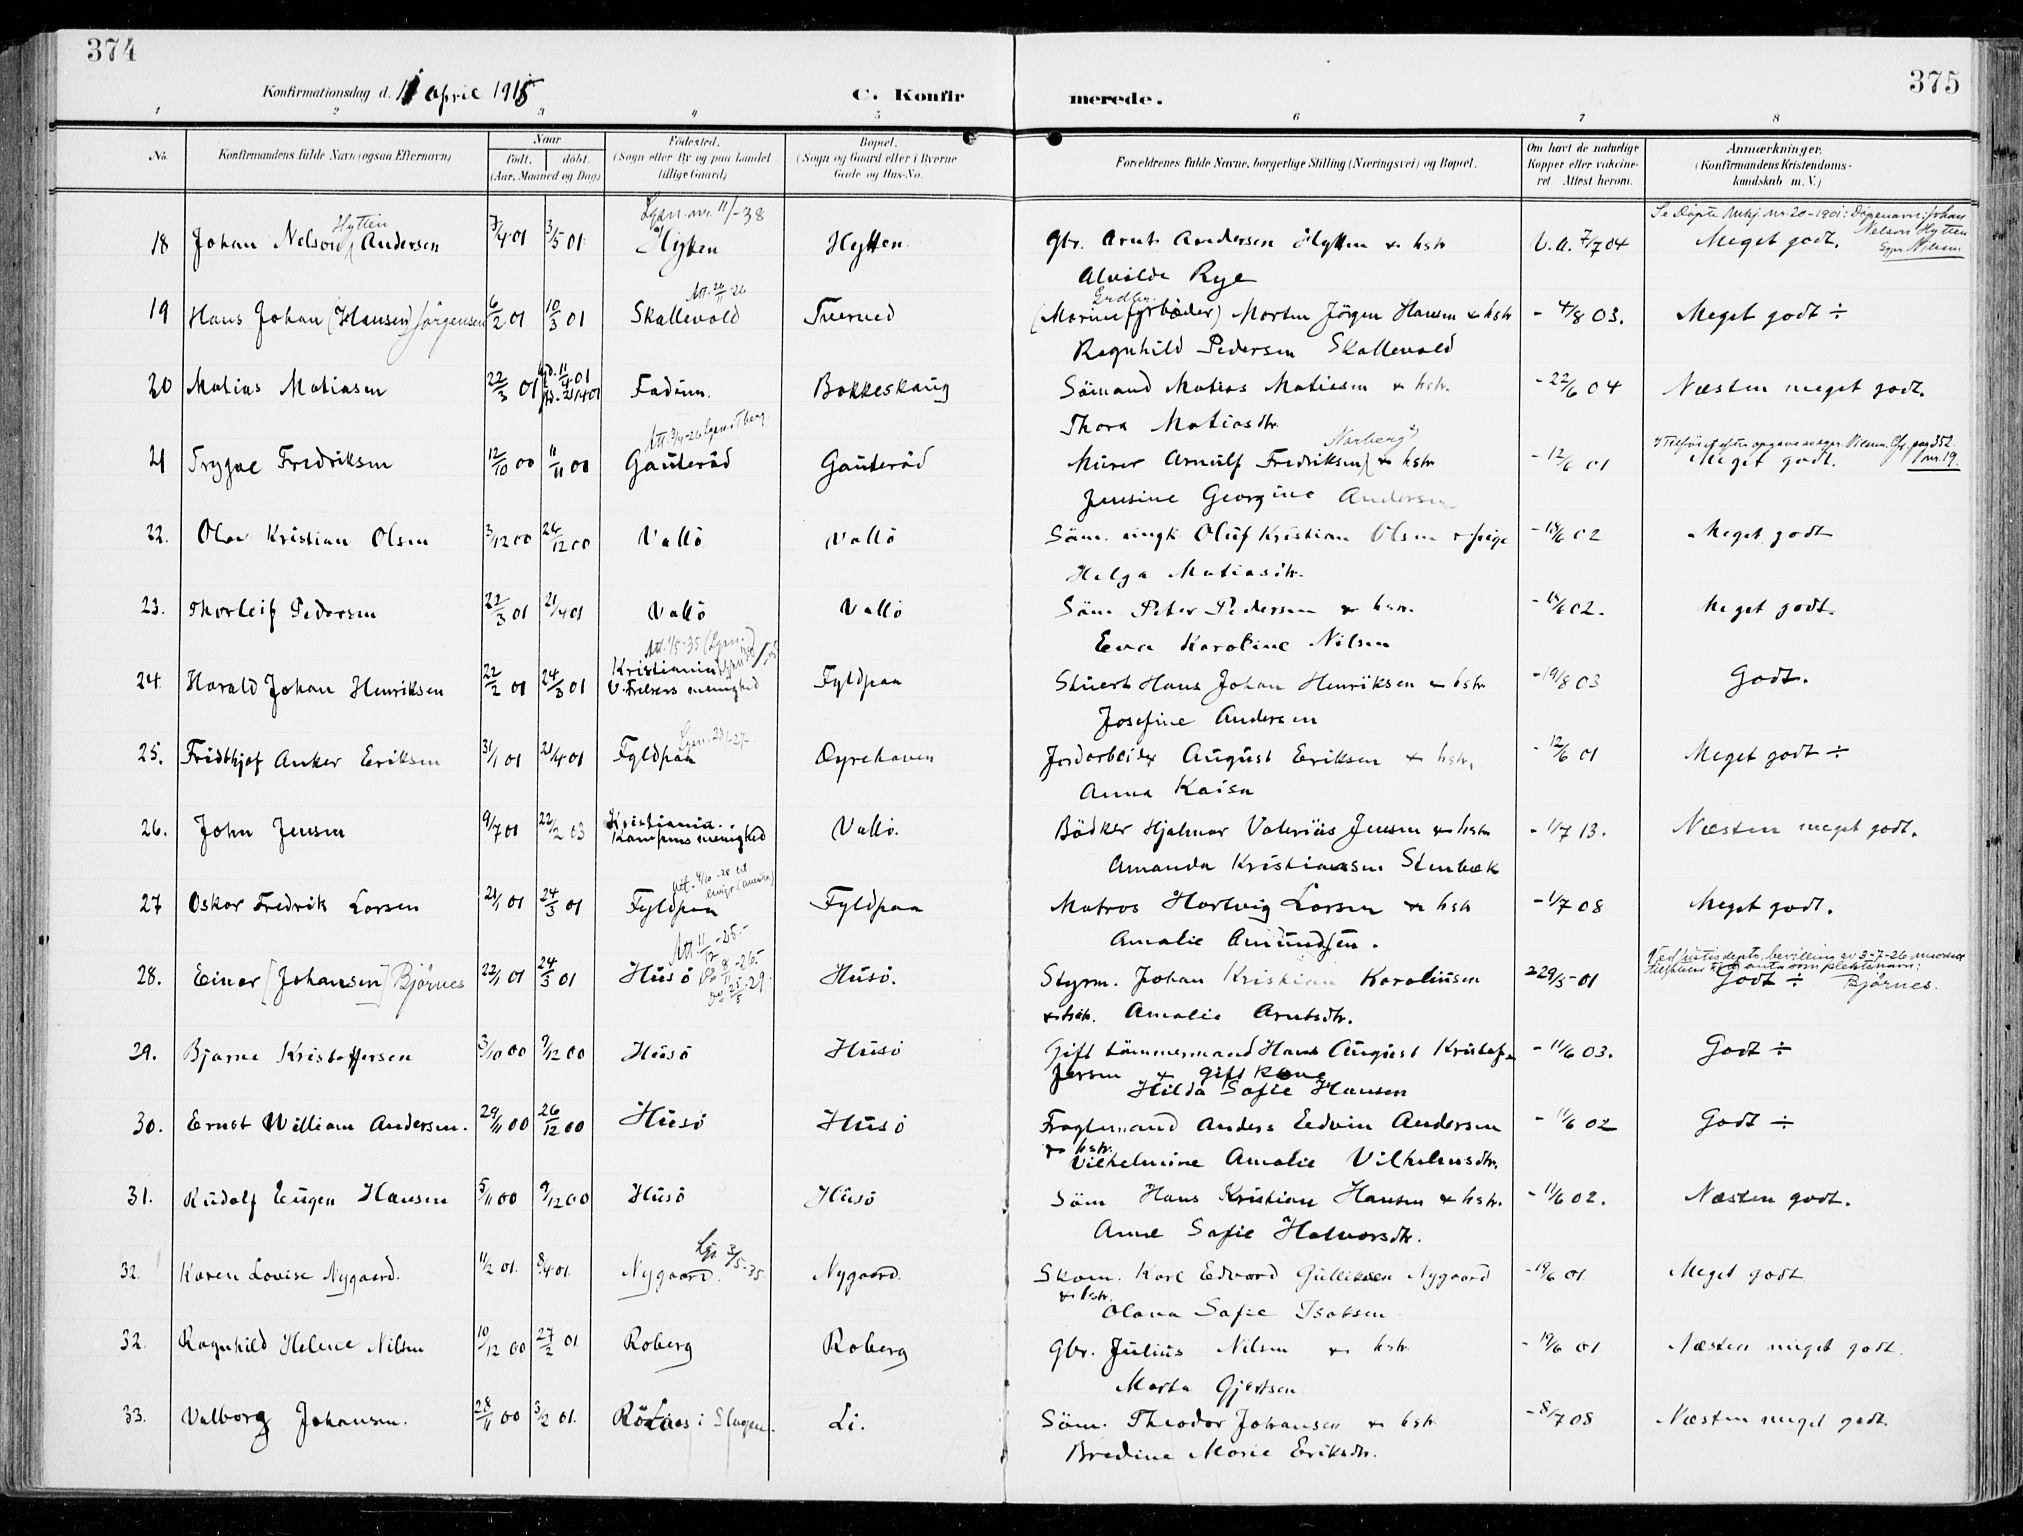 374
375
Konfirmationsdag d. 11 april 1915
C. Konfirmerede.
1 2 3 4 5 6 7 8
No.
Konfirmandens fulde Navn (ogsaa Efternavn)
Naar
født. døbt.
(Aar, Maaned og Dag)
Fødested.
(Sogn eller By og paa Landet
tillige Gaard)
Bopæl.
(Sogn og Gaard eller i Byerne
Gade og Hus-No.
Forældrenes fulde Navne, borgerlige Stilling (Næringsvei) og Bopæl.
Om havt de naturlige
Kopper eller vakcine-
ret. Attest herom.
Anmærkninger.
(Konfirmandens Kristendoms-
kundskab m. V.)
18 Johan Nelson Hytten Andersen 3/4 01 3/5 01 Hytten Hytten Gbr. Arnt Andersen Hytten & hstr V.a. 7/7 04 Meget godt.
Alvilde Rye
19 Hans Johan (Hansen) Jørgensen 6/2 01 10/3 01 Skallevold Tverved (Marinefyrbøder) Morten Jörgen Hansen & hstr - 4/8 03. Meget godt ÷
Ragnhild Pedersen Skallevold
20 Matias Matiasen 22/3 01 Fadum. Bakkeskaug Sömand Matias Matiasen & hstr - 22/6 04 Næsten meget godt.
Thora Matiasdtr.
21 Trygve Fredriksen 12/10 00 11/11 00 Gauteröd Gauteröd Murer Arnulf Fredriksen Norberg & hstr - 12/6 01 Meget godt.
Jensine Georgine Andersen
22. Olav Kristian Olsen 3/12 00 26/12 00 Vallö Vallö Söm. ungk. Oluf Kristian Olsen & pige - 18/6 02 Meget godt
Helga Matiasdtr.
23. Thorleif Pedersen 22/3 01 21/4 01 Vallö Vallö Söm Peter Pedersen & hstr. - 18/6 02. Meget godt.
Eva Karoline Nilsen
24. Harald Johan Henriksen 22/2 01 24/3 01 Kristiania Fyldpaa Stuert Hans Johan Henriksen & hstr - 19/8 03 Godt.
V. Frelsers menighed
Josefine Andersen
25. Fridthjof Anker Eriksen 31/1 01 21/4 01 Fyldpaa Dyrehaven Jordarbeider August Eriksen & hstr. - 12/6 01 Meget godt ÷
Anna Kaisa
26. John Jensen 9/7 01 22/2 03 Kristiania. Vallö. Bödker Hjalmar Valeriüs Jensen & hstr - 1/7 13. Næsten meget godt.
Kampens menighed
Amanda Kristiansen Stenbæk
27 Oskar Fredrik Larsen 21/1 01 24/3 01 Fyldpaa Fyldpaa Matros Hartvig Larsen & hstr - 1/7 08 Meget godt.
Amalie Amundsen.
28. Einar [Johansen] Bjørnes 22/1 01 24/3 01 Husö Husö. Styrm. Johan Kristian Karoliusen - 29/5 01 Godt ÷ Bjørnes.
& hstr. Amalie Arntsdtr.
29. Bjarne Kristoffersen 3/10 00 9/12 00 Husö Husö Gift tömmermand Hans August Kristof- - 11/6 03. Godt ÷
fersen & gift kone
Hilda Sofie Hansen
30. Ernst William Andersen. 29/11 00 26/12 00 Husö Husö Fragtemand Anders Edvin Andersen - 11/6 02 Godt ÷
& hstr.
Vilhelmine Amalie Vilhelmsdtr.
31. Rudolf Eugen Hansen 5/11 00 9/12 00 Husö Husö Söm Hans Kristian Hansen & hstr. - 11/6 02. Næsten godt.
Anne Sofie Halvorsdtr.
32. Karen Lovise Nygaard. 11/2 01. 8/4 01. Nygaard. Nygaard. Skom. Karl Edvard Gulliksen Nygaard - 19/6 01 Meget godt
& hstr.
Olava Sofie Isaksen
32. Ragnhild Helene Nilsen 10/12 00 27/2 01 Roberg Roberg Gbr. Julius Nilsen & hstr. - 19/6 01 Næsten meget godt.
Marta Gjertsen
33. Valborg Johansen. 28/11 00 3/2 01. i Slagen. Li. Söm. Theodor Johansen & hstr. - 8/7 08 Næsten meget godt.
Bredine Marie Eriksdtr.